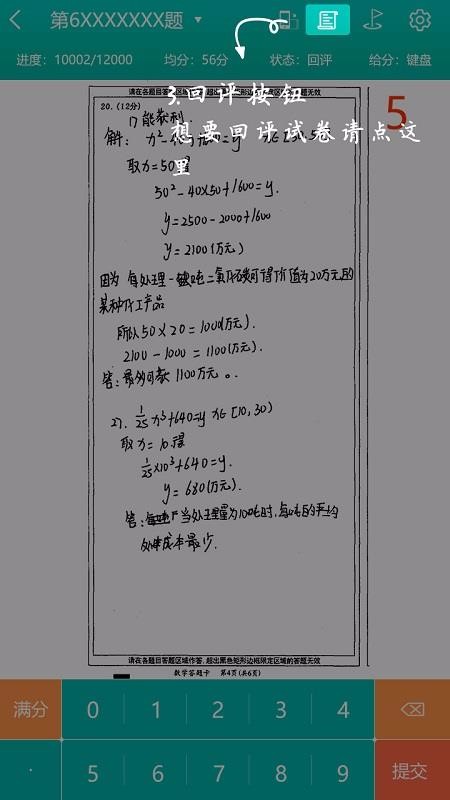 第6XXXXXXX题
进度：10002/12000 均分：56分 状态：回评 给分：键盘
请在各题目答题区域作答，超出黑色矩形边框限定区域的答题无效
3.回评按钮
想要回评试卷请点这
里
5
20.(12分)
1) 能获利.
解：
取x=50得
50²-40×50+1600=y.
y=2500-2000+1600
y=2100(万元)
因为 每处理一吨二氧化碳可得价值为20万元的
某种化工产品
所以50×20=1000(万元).
2100-1000=1100(万元).
答：最多可获1100万元。
2). 1/25 x³+640=y x∈[10,30)
取x=10.得
1/25×10³+640=y.
y=680(万元).
答： 当处理量为10吨时,每吨的平均
处理成本最少.
请在各题目答题区域作答，超出黑色矩形边框限定区域的答题无效
数学答题卡 第4页(共6页)
满分 0 1 2 3 4
. 5 6 7 8 9 提交